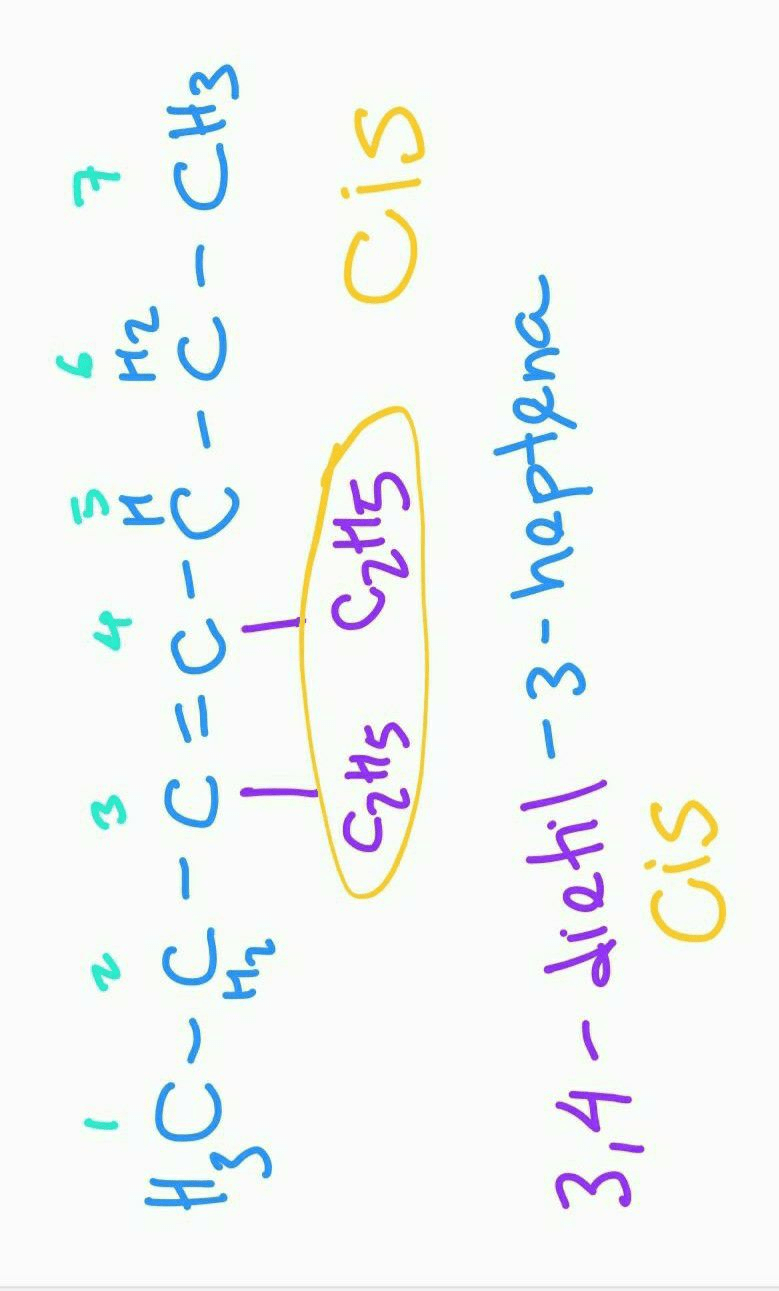 1 2 3 4 5 6 7
H H2
H3C - C - C = C - C - C - CH3
H2
C2H5 C2H5 Cis
3,4 - dietil - 3 - heptena
Cis